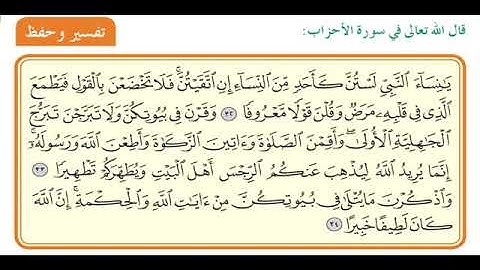 قال الله تعالى في سورة الأحزاب:
تفسير وحفظ
يَٰنِسَآءَ ٱلنَّبِيِّ لَسۡتُنَّ كَأَحَدٖ مِّنَ ٱلنِّسَآءِ إِنِ ٱتَّقَيۡتُنَّۚ فَلَا تَخۡضَعۡنَ بِٱلۡقَوۡلِ فَيَطۡمَعَ
ٱلَّذِي فِي قَلۡبِهِۦ مَرَضٞ وَقُلۡنَ قَوۡلٗا مَّعۡرُوفٗا ٣٢ وَقَرۡنَ فِي بُيُوتِكُنَّ وَلَا تَبَرَّجۡنَ تَبَرُّجَ
ٱلۡجَٰهِلِيَّةِ ٱلۡأُولَىٰۖ وَأَقِمۡنَ ٱلصَّلَوٰةَ وَءَاتِينَ ٱلزَّكَوٰةَ وَأَطِعۡنَ ٱللَّهَ وَرَسُولَهُۥٓۚ
إِنَّمَا يُرِيدُ ٱللَّهُ لِيُذۡهِبَ عَنكُمُ ٱلرِّجۡسَ أَهۡلَ ٱلۡبَيۡتِ وَيُطَهِّرَكُمۡ تَطۡهِيرٗا ٣٣
وَٱذۡكُرۡنَ مَا يُتۡلَىٰ فِي بُيُوتِكُنَّ مِنۡ ءَايَٰتِ ٱللَّهِ وَٱلۡحِكۡمَةِۚ إِنَّ ٱللَّهَ
كَانَ لَطِيفًا خَبِيرًا ٣٤